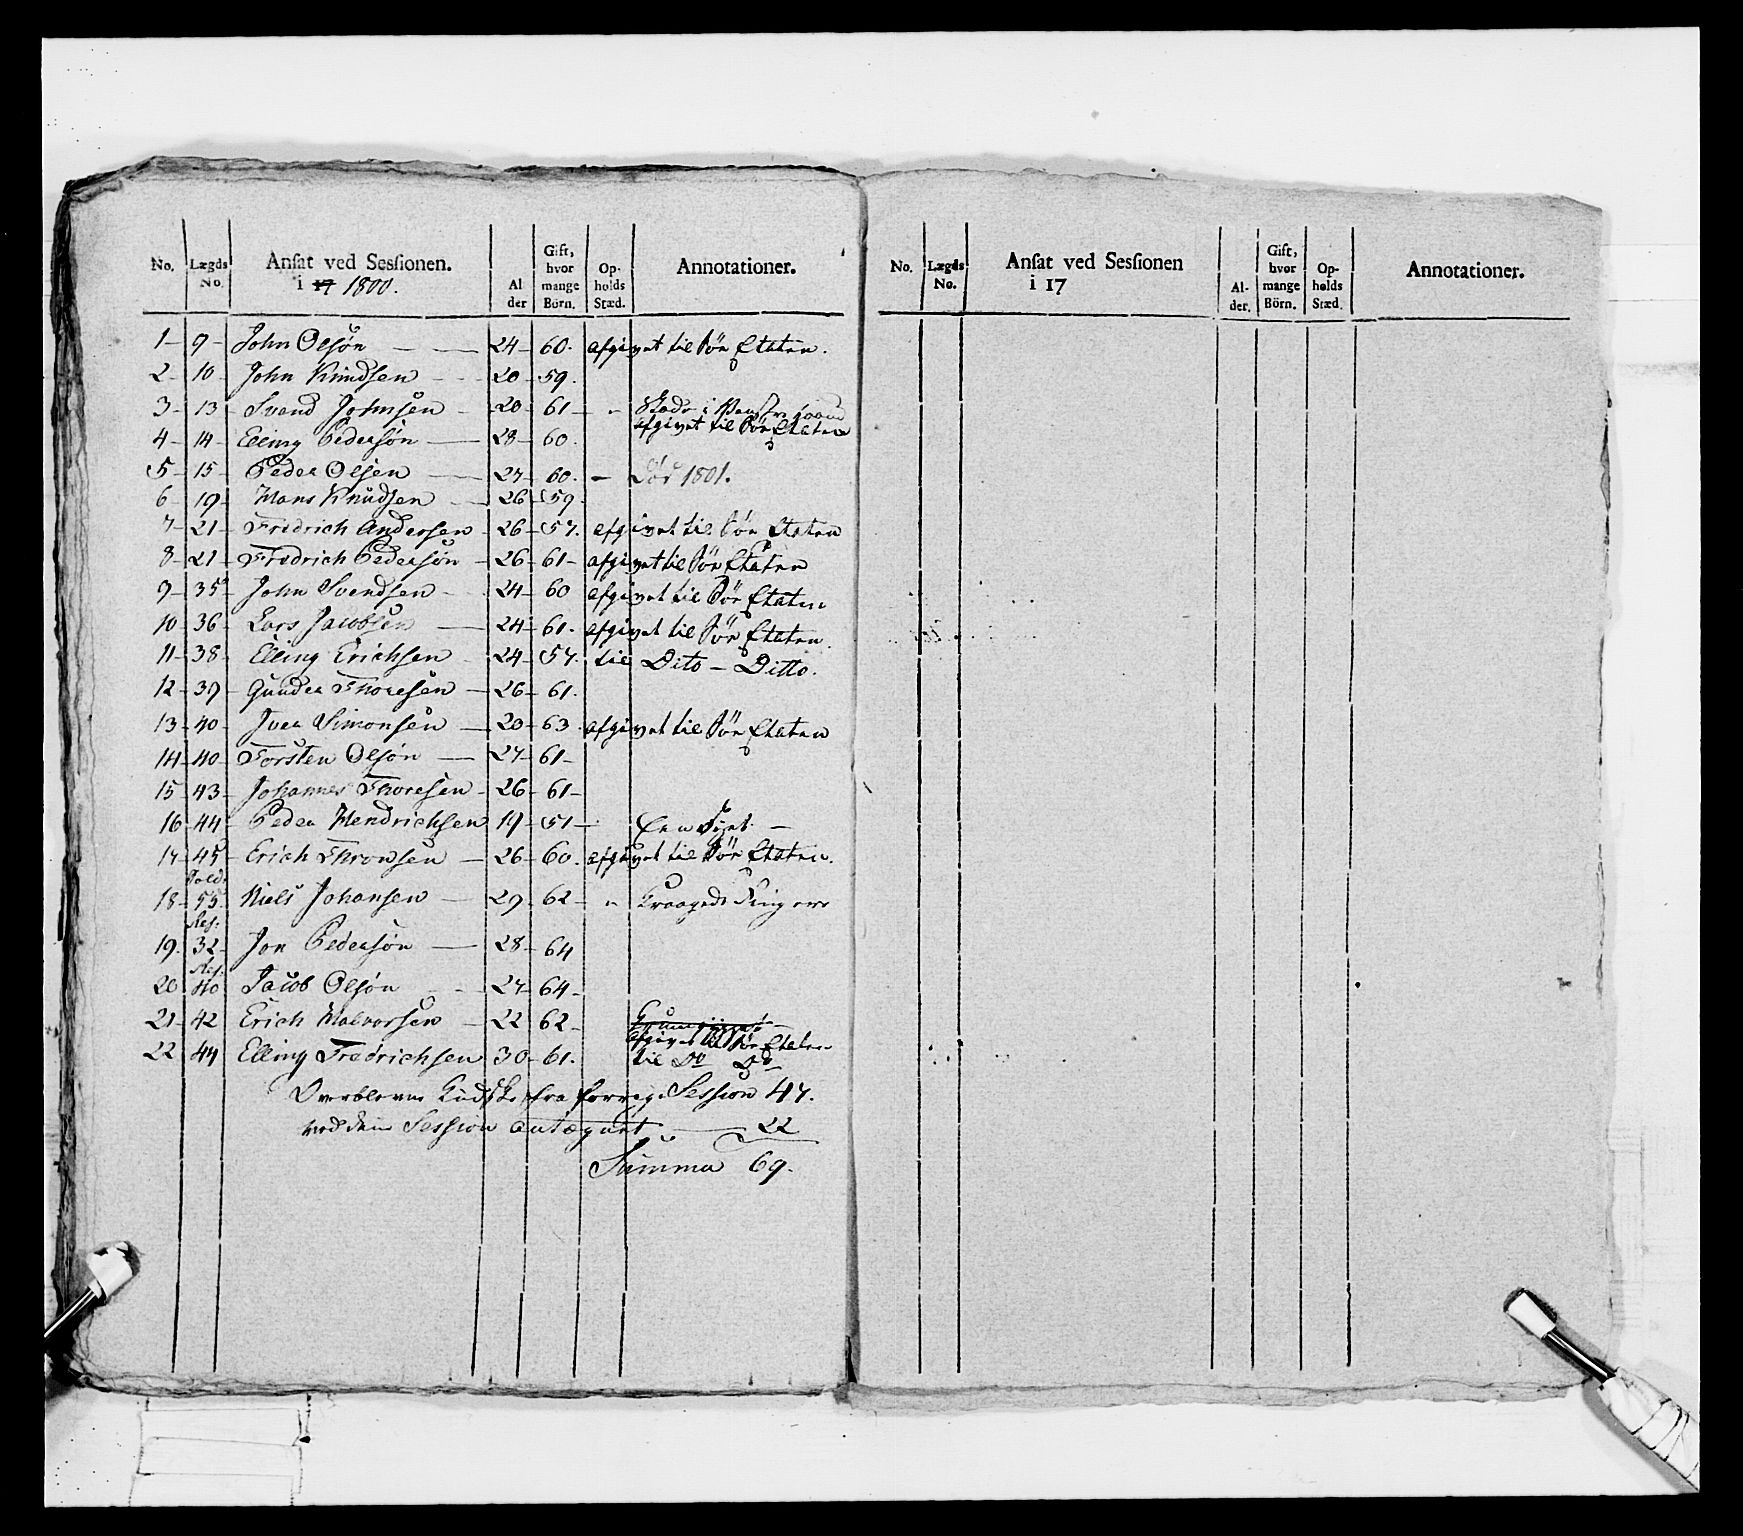 No. Lægds No. Ansat ved Sessionen. i 17 1800. Al der Gift, hvor mange Börn. Op- holds Stæd. Annotationer.
1 - 9 - John Olsøn - 24 - 60. afgivet til Söe Etaten.
2 - 10 - John Knudsen - 20 - 59.
3 - 13 - Svend Johnsen - 20 - 61 - " Skade i Venstre Haand
4 - 14 - Elling Pedersøn - 28 - 60. afgivet til Söe Etaten
5 - 15 - Peder Olsen - 27 - 60. - Död 1801.
6 - 19 - Hans Knudsen - 26 - 59
7 - 21 - Fredrich Andersen - 26 - 57. afgivet til Söe Etaten
8 - 21 - Fredrich Pedersøn - 26 - 61 - afgivet til Söe Etaten
9 - 35 - John Svendsen - 24 - 60 afgivet til Söe Etaten
10 - 36 - Lars Jacobsen - 24 - 61. afgivet til Söe Etaten.
11 - 38 - Elling Erichsen - 24 - 57. til Dito - Ditto.
12 - 39 - Gunder Thoresen - 26 - 61.
13 - 40 - Iver Simonsen - 20 - 63. afgivet til Söe Etaten
14 - 40 - Torsten Olsøn - 27 - 61 -
15 - 43 - Johannes Thoresen - 26 - 61 -
16 - 44 - Peder Hendrichsen 19 - 51 -
17 - 45 - Erich Thronsen - 26 - 60. afgivet til Söe Etaten.
18 - Sold. 55. Niels Johansen - 29 - 62 - " Kraagede Fingere
19. Res. 32 - Jon Pedersøn - 28 - 64
20 Res. 40 Jacob Olsøn - 27 - 64 -
21 - 42 - Erich Halvorsen - 22 - 62 - afgivet til Söe Etaten
22 - 44 Elling Fredrichsen - 30 - 61. til Do Do
Overbleven fra forrige Session 47.
ved denne Session antegnet - 22
Summa 69.
No. Lægds No. Ansat ved Sessionen i 17 Al- der. Gift, hvor mange Börn. Op- holds Stæd. Annotationer.